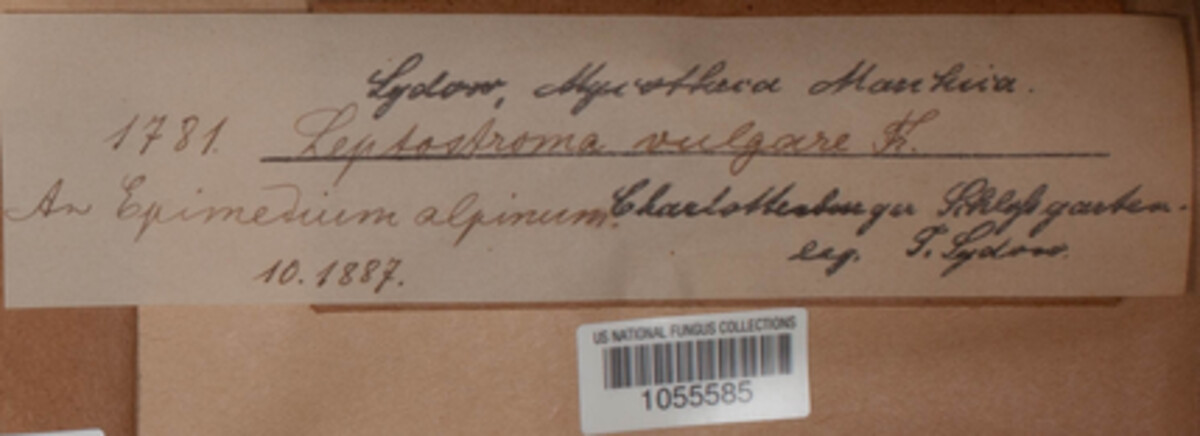 Sydow, Mycotheca Marchica.
1781. Leptostroma vulgare Fr.
An Epimedium alpinum. Charlottenburger Schloßgarten.
leg. P. Sydow.
10. 1887.
US NATIONAL FUNGUS COLLECTIONS
1055585